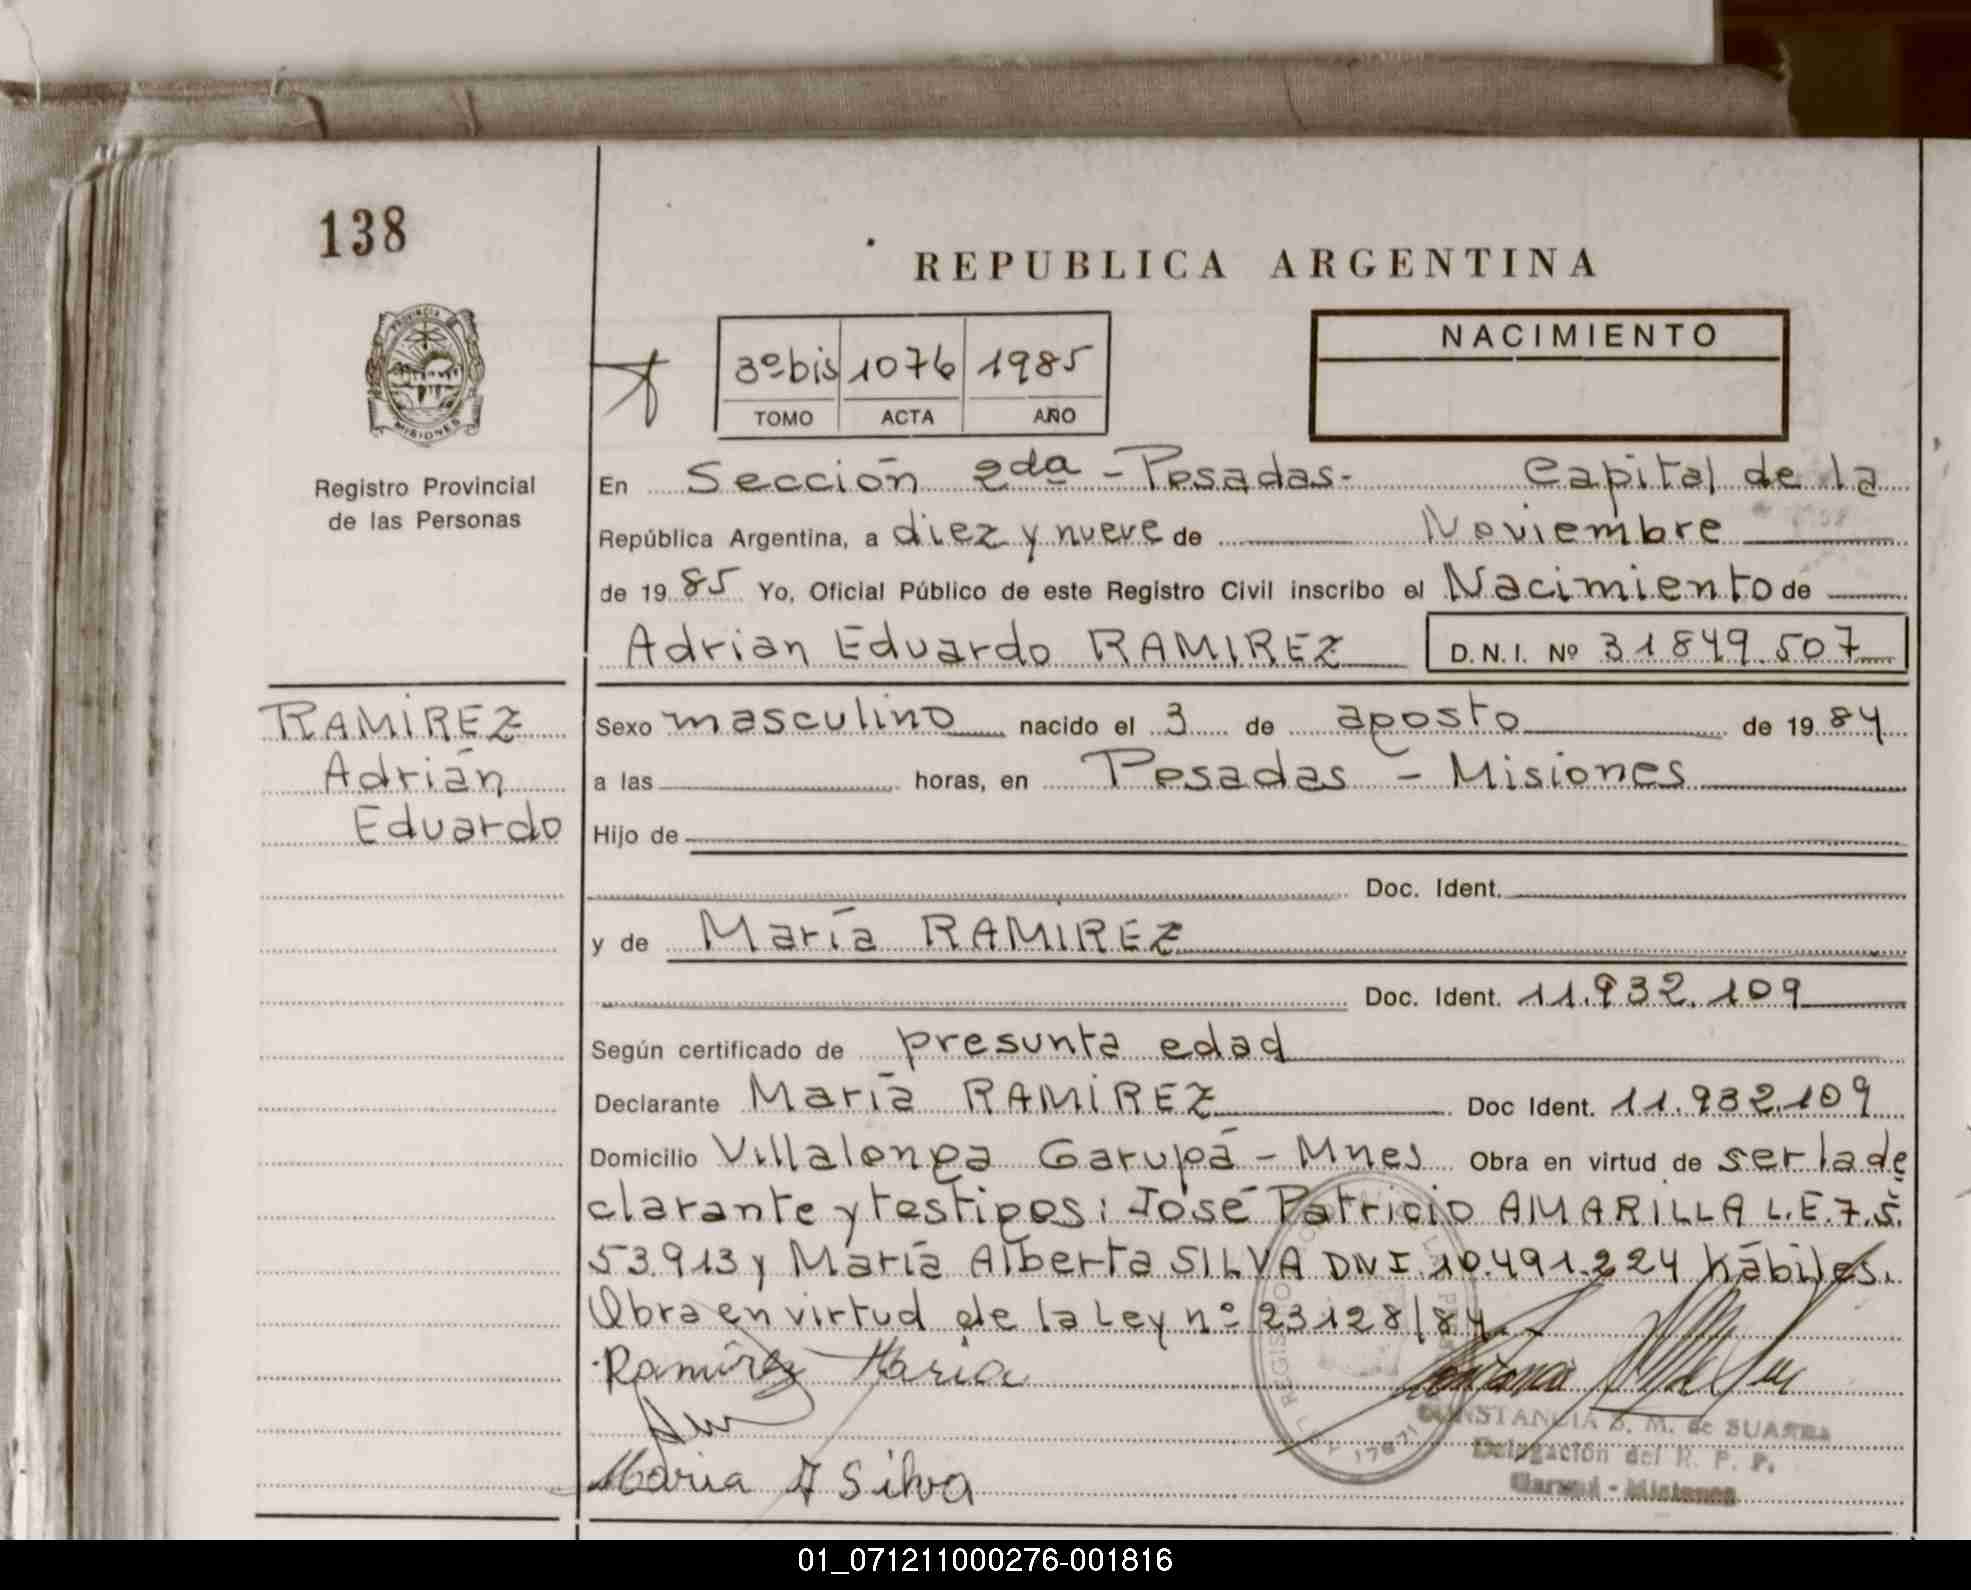 138
REPUBLICA ARGENTINA
PROVINCIA DE
MISIONES
NACIMIENTO
3º bis 1076 1985
TOMO ACTA AÑO
Registro Provincial
de las Personas
En Sección 2da - Posadas- Capital de la
República Argentina, a diez y nueve de Noviembre
de 19 85 Yo, Oficial Público de este Registro Civil inscribo el Nacimiento de
Adrian Eduardo RAMIREZ D.N.I. Nº 31849.507
RAMIREZ
Adrián
Eduardo
Sexo masculino nacido el 3 de agosto de 19 84
a las horas, en Posadas - Misiones
Hijo de
Doc. Ident.
y de María RAMIREZ
Doc. Ident. 11.932.109
Según certificado de presunta edad
Declarante María RAMIREZ Doc Ident. 11.932.109
Domicilio Villalonga Garupá - Mnes Obra en virtud de ser la de
clarante y testigos: José Patricio AMARILLA L.E. 7.5
53.913 y María Alberta SILVA DNI 10.491.224 hábiles.
Obra en virtud de la Ley nº 23128/84.-
Ramírez Maria
Maria A Silva
CONSTANCIA S. M. de SUAREZ
Delegación del R. P. P.
Garupá - Misiones
01_071211000276-001816